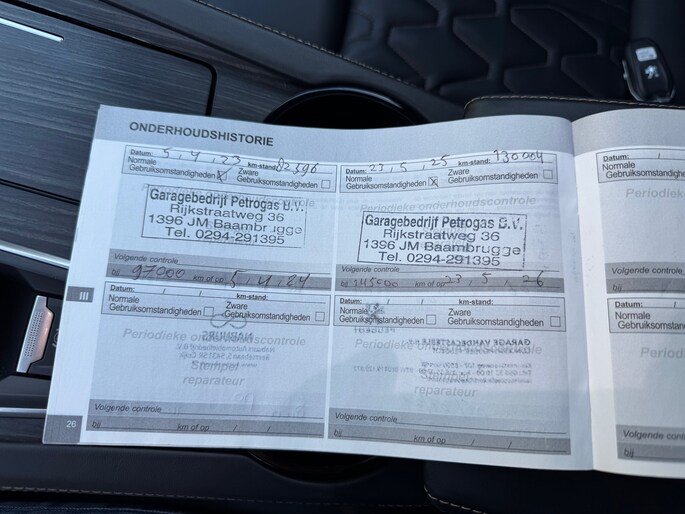 ONDERHOUDSHISTORIE
Datum: 5, 4, 23 km-stand: 82396
Normale Gebruiksomstandigheden Zware Gebruiksomstandigheden
Garagebedrijf Petrogas B.V.
Rijkstraatweg 36
1396 JM Baambrugge
Tel. 0294-291395
Volgende controle
bij 97000 km of op 5, 4, 24
Datum: 23, 5, 25 km-stand: 130004
Normale Gebruiksomstandigheden Zware Gebruiksomstandigheden
Periodieke onderhoudscontrole
Garagebedrijf Petrogas B.V.
Rijkstraatweg 36
1396 JM Baambrugge
Tel. 0294-291395
Volgende controle
bij 145000 km of op 23, 5, 26
Datum: / / km-stand:
Normale Gebruiksomstandigheden Zware Gebruiksomstandigheden
Periodieke onderhoudscontrole
Stempel
reparateur
Volgende controle
bij km of op / /
Datum: / / km-stand:
Normale Gebruiksomstandigheden Zware Gebruiksomstandigheden
Periodieke onderhoudscontrole
reparateur
Volgende controle
bij km of op / /
Datum: /
Normale
Gebruiksomstandigheden
Volgende controle
bij
Datum: / /
Normale
Gebruiksomstandigheden
Volgende controle
bij
III
26